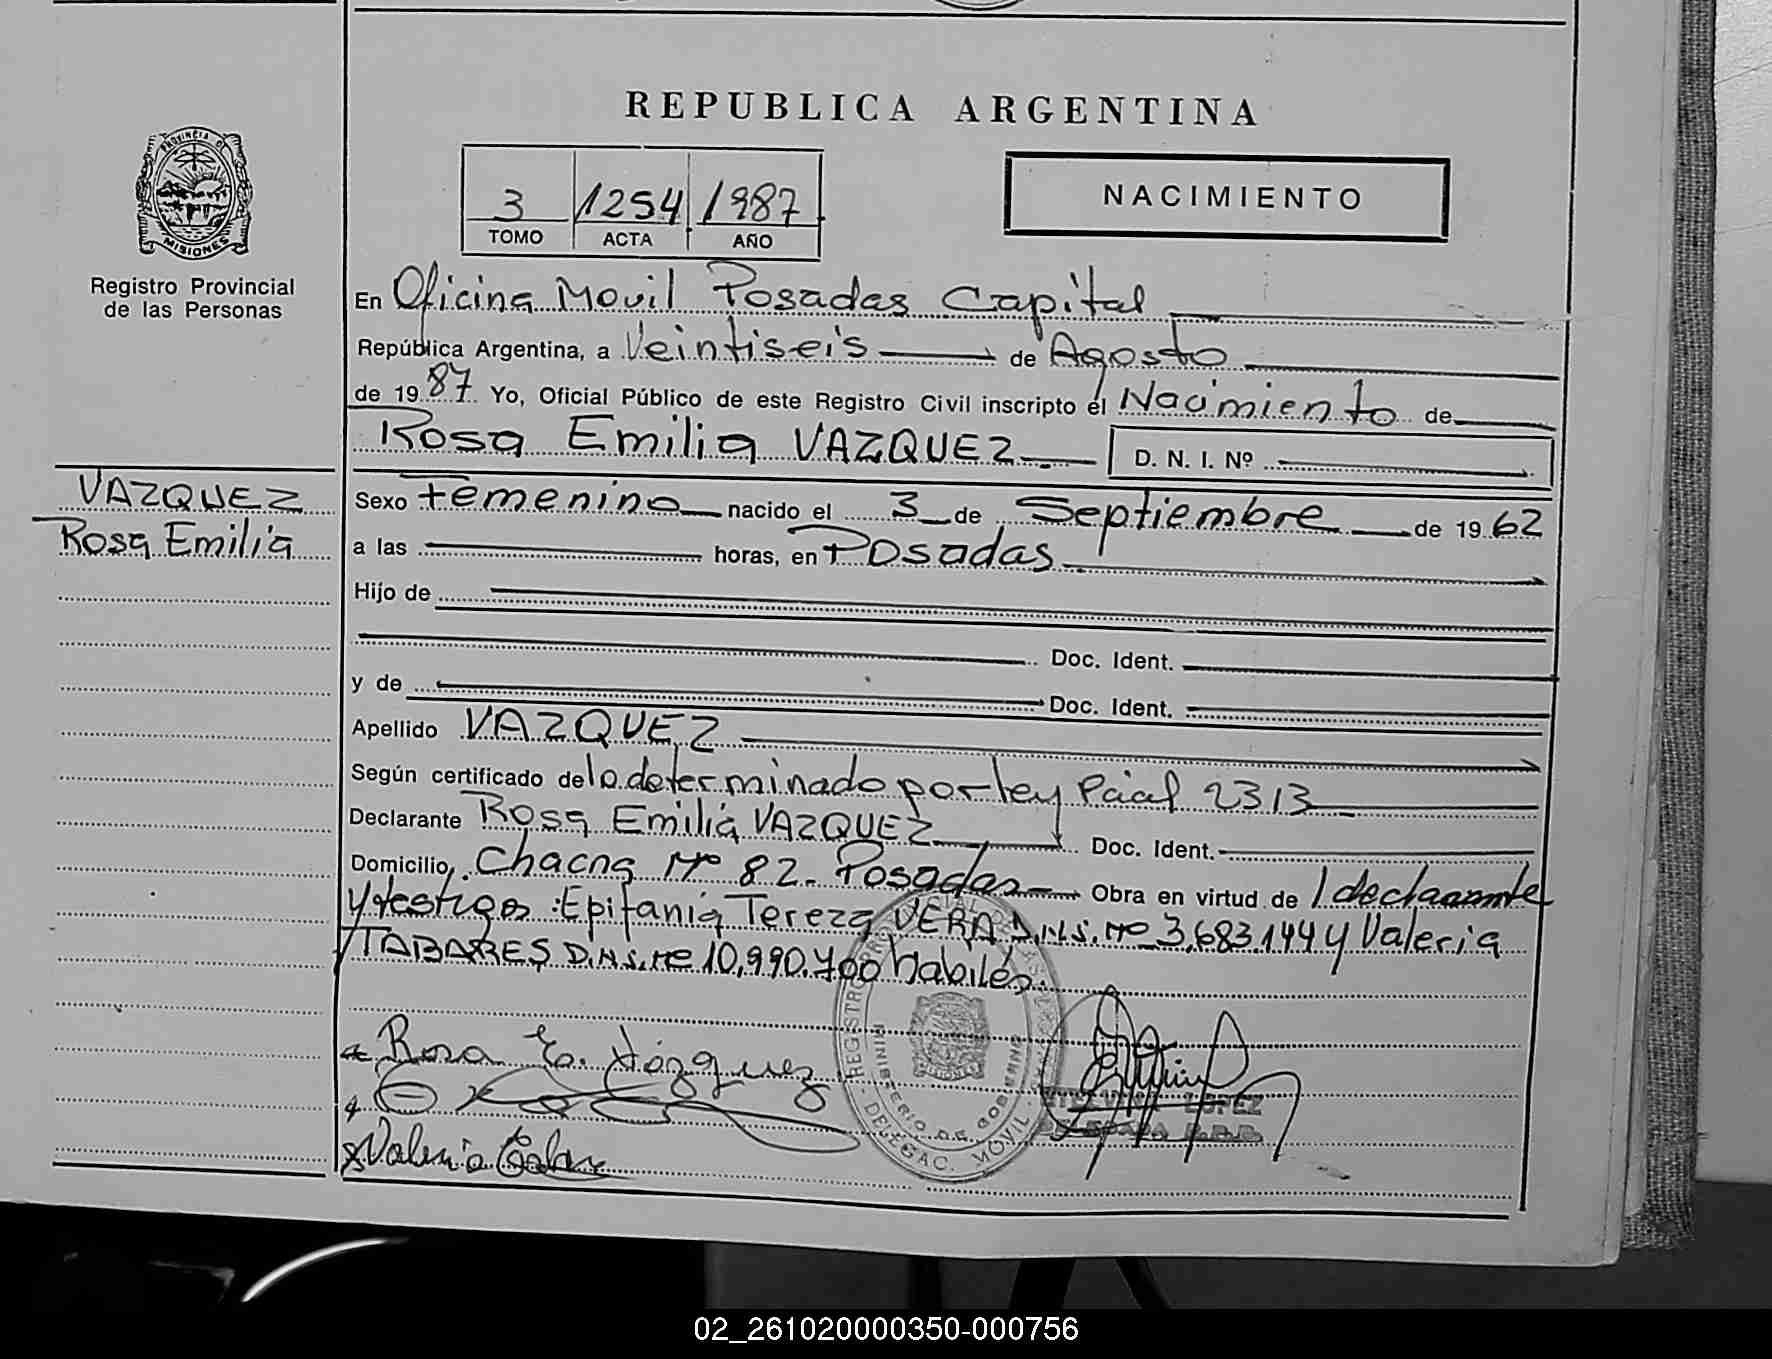 REPUBLICA ARGENTINA
3 1254 1987
TOMO ACTA AÑO
NACIMIENTO
PROVINCIA DE
MISIONES
Registro Provincial
de las Personas
En Oficina Movil Posadas Capital
República Argentina, a Veintiseis de Agosto
de 1987 Yo, Oficial Público de este Registro Civil inscripto el Nacimiento de
Rosa Emilia VAZQUEZ D. N. I. Nº
VAZQUEZ
Rosa Emilia
Sexo Femenino nacido el 3 de Septiembre de 1962
a las horas, en Posadas
Hijo de
Doc. Ident.
y de Doc. Ident.
Apellido VAZQUEZ
Según certificado de lo determinado por ley Pcial 2313
Declarante Rosa Emilia VAZQUEZ Doc. Ident.
Domicilio Chacra Nº 82. Posadas Obra en virtud de 1 declarante
y testigos: Epifania Tereza VERA D.N.I. Nº 3,683.144 y Valeria
TABARES D.N.I. Nº 10,990.700 habiles.
Rosa E. Vázquez
Valeria
REGISTRO PROVINCIAL DE LAS PERSONAS
MINISTERIO DE GOBIERNO
DELEGAC. MOVIL
LOPEZ
02_261020000350-000756